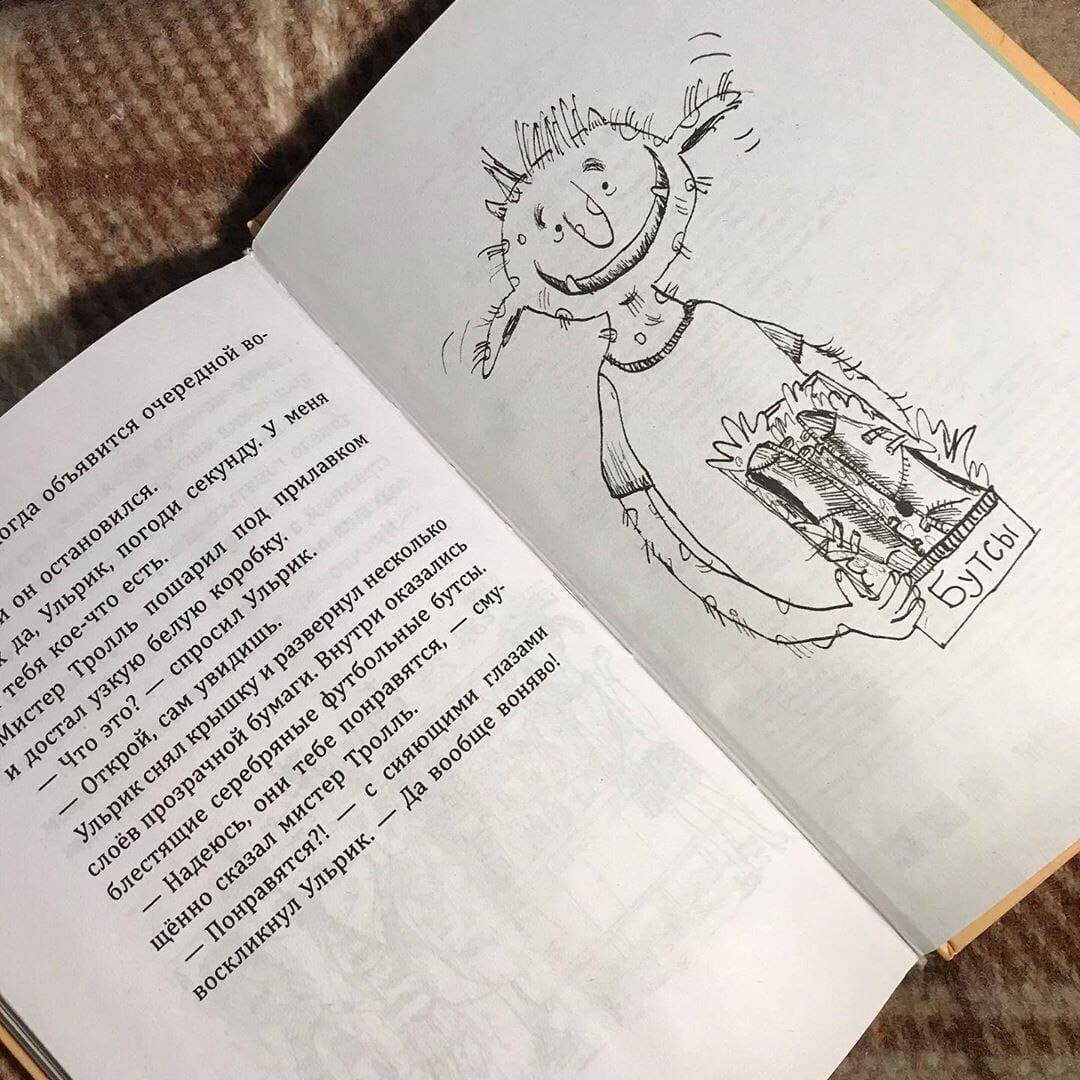 объявится очередной во-
и он остановился.
да, Ульрик, погоди секунду. У меня
тебя кое-что есть.
Мистер Тролль пошарил под прилавком
и достал узкую белую коробку.
— Что это? — спросил Ульрик.
— Открой, сам увидишь.
Ульрик снял крышку и развернул несколько
слоёв прозрачной бумаги. Внутри оказались
блестящие серебряные футбольные бутсы.
— Надеюсь, они тебе понравятся, — сму-
щённо сказал мистер Тролль.
— Понравятся?! — с сияющими глазами
воскликнул Ульрик. — Да вообще воняво!
Бутсы